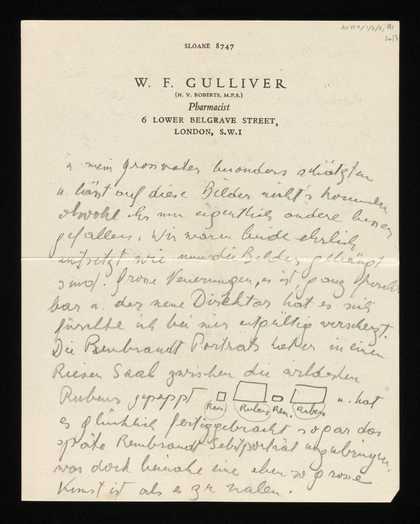 SLOANE 8747
W. F. GULLIVER
(H. V. ROBERTS, M.P.S.)
Pharmacist
6 LOWER BELGRAVE STREET,
LONDON, S.W.1
u mein Grossvater besonders schätzten
u. lässt auf diese Bilder nicht's kommen
obwohl ihr nun eigentlich andere besser
gefallen. Wir waren beide ehrlich
entsetzt wie nun die Bilder gehängt
sind. Grosse Neuerungen, es ist ganz furcht
bar u. der neue Director hat es sich
fürchte ich bei mir entgültig verscherzt.
Die Rembrandt Porträts hat er in einen
Riesen Saal zwischen die wildesten
Rubens gepappt u. hat
Rem. Rubens Rem. Rubens
es glücklich fertiggebracht sogar das
späte Rembrandt Selbstporträt umzubringen
was doch beinahe eine eben so grosse
Kunst ist als es zu malen.